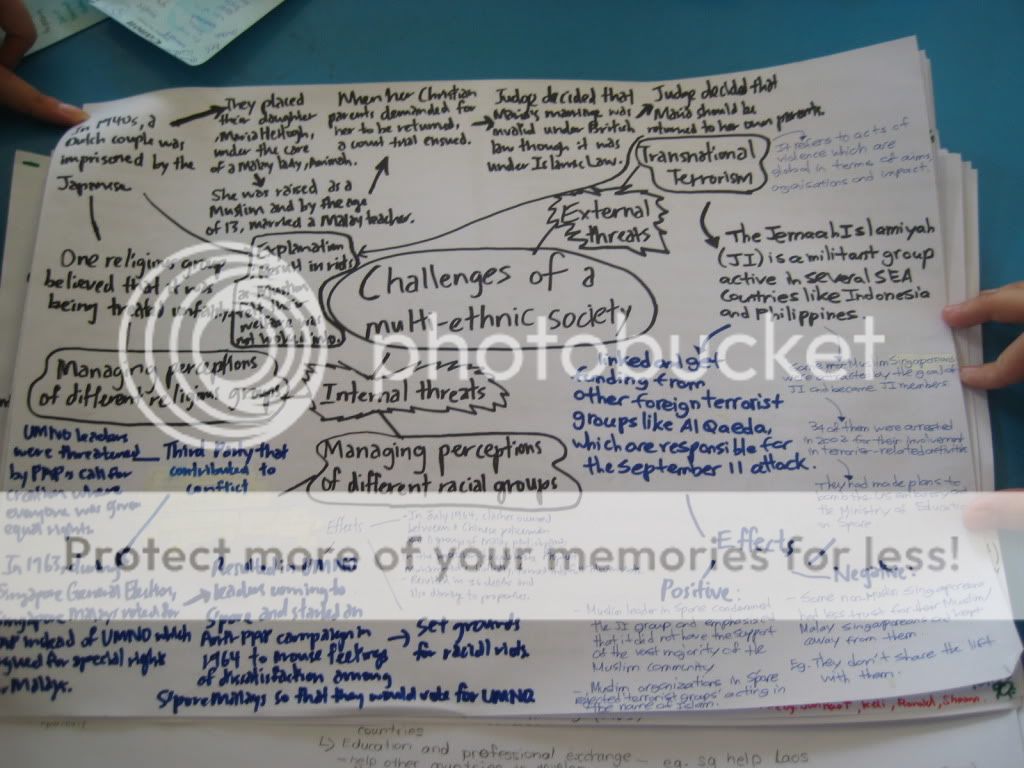 In 1940s, a
Dutch couple was
imprisoned by the
Japanese
They placed
their daughter
, Maria Hertogh,
under the care
of a Malay lady, Aminah.
She was raised as a
Muslim and by the age
of 13, married a Malay teacher.
When her Christian
parents demanded for
her to be returned,
a court trial ensued.
Judge decided that
Maria's marriage was
invalid under British
law though it was
under Islamic Law.
Judge decided that
Maria should be
returned to her own parents.
Transnational
Terrorism
It refers to acts of
violence which are
global in terms of aims,
organisations and impact.
External
threats
The Jemaah Islamiyah
(JI) is a militant group
active in several SEA
Countries like Indonesia
and Philippines.
One religious group
believed that it was
being treated unfairly
Explanation
in riots
welfare was
Challenges of a
multi-ethnic society
photobucket
Managing perceptions
of different religious groups
Internal threats
Managing perceptions
of different racial groups
linked and get
funding from
other foreign terrorist
groups like Al Qaeda,
which are responsible for
the September 11 attack.
Some Muslim Singaporeans
were attracted by the goal of
JI and became JI members
34 of them were arrested
in 2002 for their involvement
in terrorist-related activities
They had made plans to
bomb the US embassy and
the Ministry of Education
in Spore
UMNO leaders
were threatened
by PAP's call for
creation where
everyone was given
equal rights
Third Party that
contributed to
conflict
Effects
- In July 1964, clashes
between a Chinese policeman
deaths and
to properties.
Protect more of your memories for less!
In 1963, during
Singapore General Election,
Singapore Malays voted for
instead of UMNO which
for special rights
Malays.
Resulted in UMNO
leaders coming to
Spore and started an
Anti-PAP campaign in
1964 to arouse feelings
of dissatisfaction among
S'pore Malays so that they would vote for UMNO
Set grounds
for racial riots
Effects
Positive:
- Muslim leader in Spore condemned
the JI group and emphasized
that it did not have the support
of the vast majority of the
Muslim community
- Muslim organizations in Spore
rejected terrorist groups' acting in
the name of Islam.
Negative:
- Some non-Muslim Singaporeans
had less trust for their Muslim/
Malay Singaporeans and kept
away from them.
Eg. They don't share the lift
with them.
Keli, Ronald, Shawn
countries
↳ Education and professional exchange
- help other countries to develop
eg. sg help Laos